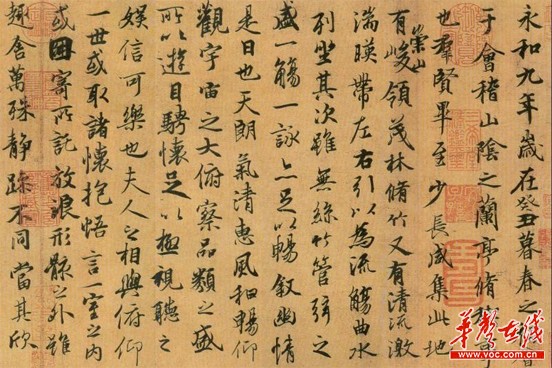 永和九年歲在癸丑暮春之初會
于會稽山陰之蘭亭脩禊事
也羣賢畢至少長咸集此地
有崇山峻領茂林脩竹又有清流激
湍暎帶左右引以為流觴曲水
列坐其次雖無絲竹管弦之
盛一觴一詠亦足以暢敘幽情
是日也天朗氣清惠風和暢仰
觀宇宙之大俯察品類之盛
所以遊目騁懷足以極視聽之
娛信可樂也夫人之相與俯仰
一世或取諸懷抱悟言一室之內
或因寄所託放浪形骸之外雖
趣舍萬殊靜躁不同當其欣
华声在线
www.voc.com.cn